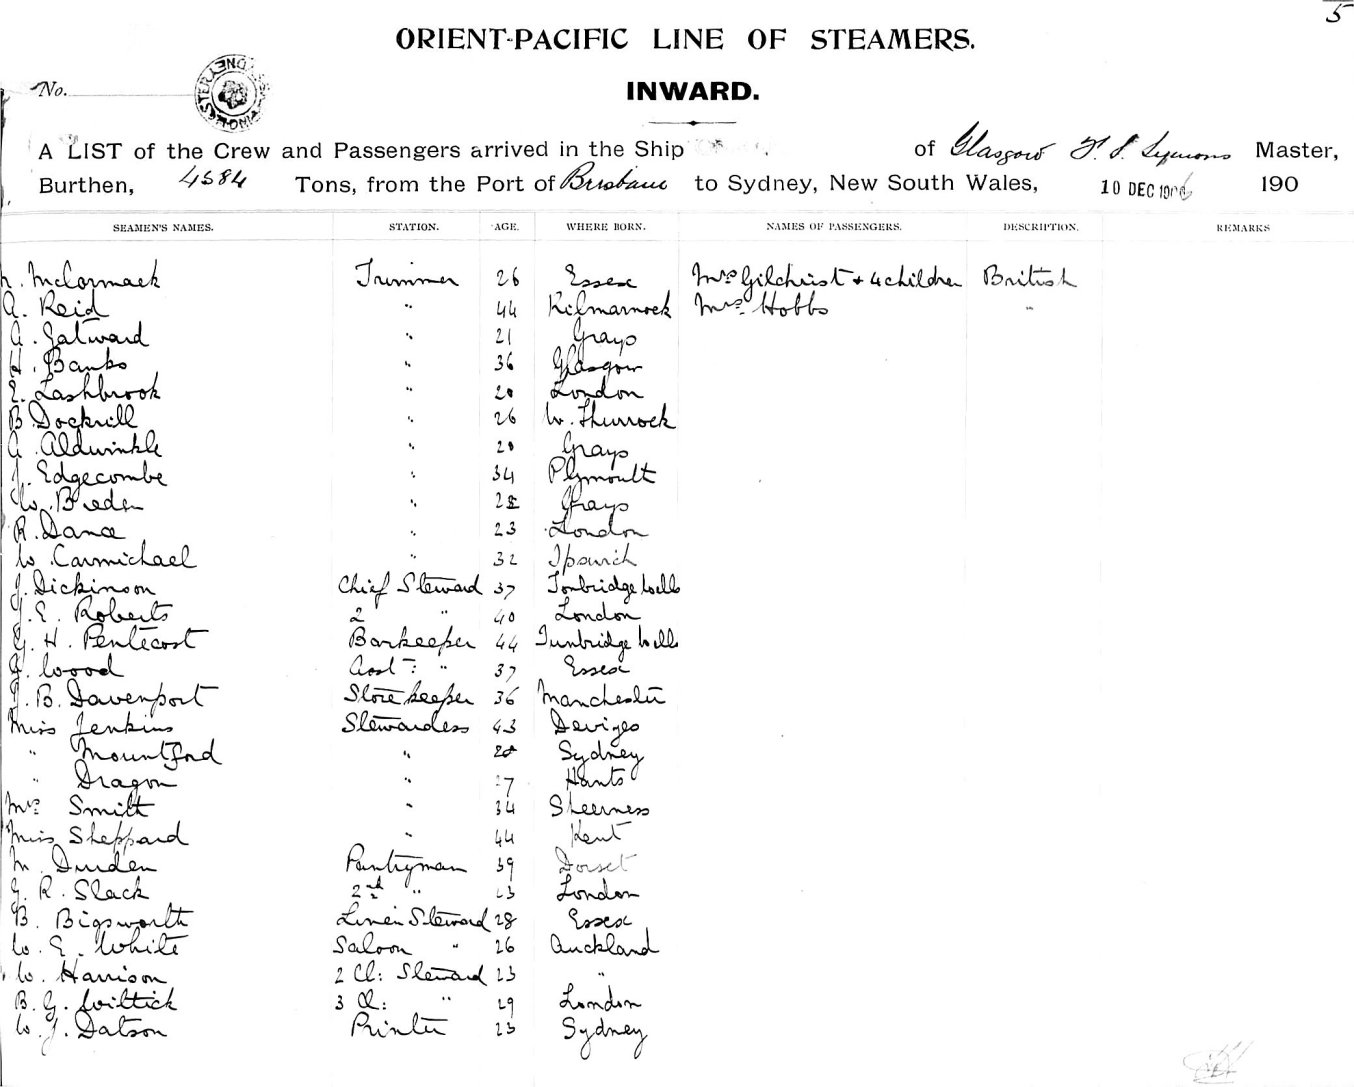 5
ORIENT-PACIFIC LINE OF STEAMERS.
INWARD.
No.
A LIST of the Crew and Passengers arrived in the Ship of Glasgow Symons Master,
Burthen, 4584 Tons, from the Port of Brisbane to Sydney, New South Wales, 10 DEC 1906 190
SEAMEN'S NAMES. STATION. AGE. WHERE BORN. NAMES OF PASSENGERS. DESCRIPTION. REMARKS
McCormack Trimmer 26 Essex Mrs Gilchrist + 4 children British
A. Reid " 44 Kilmarnock Mrs. Hobbs "
A. Gatward " 21 Grays
H. Banks " 36 Glasgow
E. Lashbrook " 20 London
B. Dockrill " 26 W. Thurrock
A. Aldwinkle " 20 Grays
J. Edgecombe " 34 Plymouth
W. Breden " 28 Grays
R. Dance " 23 London
W. Carmichael " 32 Ipswich
J. Dickinson Chief Steward 37 Tonbridge Wells
J. E. Roberts 2 " 40 London
G. H. Pentecost Barkeeper 44 Tunbridge Wells
J. Wood Asst: " 37 Essex
J. B. Davenport Storekeeper 36 Manchester
Miss Jenkins Stewardess 43 Devizes
" Mountford " 28 Sydney
" Dragon " 27 Hants
Mrs Smith " 34 Sheerness
Miss Sheppard " 44 Kent
M. Durden Pantryman 39 Dorset
G. R. Slack 2nd " 23 London
B. Bigsworth Linen Steward 28 Essex
W. E. White Saloon " 26 Auckland
W. Harrison 2 Cl: Steward 23 "
B. G. Wiltick 3 Cl: " 29 London
W. J. Datson Printer 23 Sydney